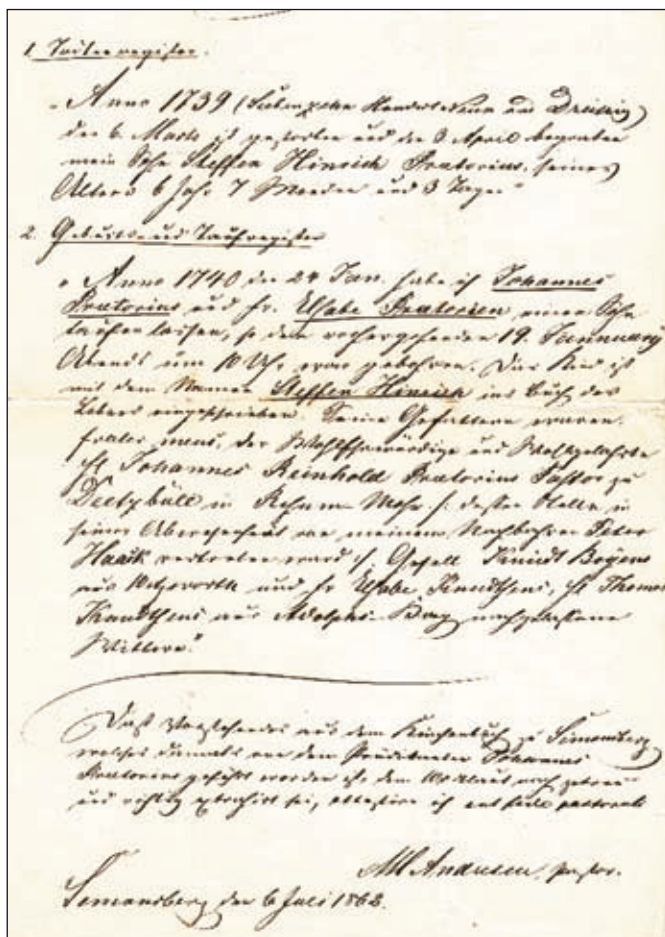 1. Todtenregister.
„Anno 1739 (Siebenzehn Hundert Neun und Dreissig)
den 6. Martz ist gestorben und den 3 April begraben
mein Sohn Steffen Hinrich Prätorius, seines
Alters 6 Jahr 7 Wochen und 3 Tage."
2. Geburts- und Taufregister
„Anno 1740 den 24 Jan. habe ich Johannes
Prätorius und Fr. Wabe Prätorien einen Sohn
taufen lassen, so den vorhergehenden 19. Januarii
Abends um 10 Uhr war gebohren. Das Kind ist
mit dem Namen Steffen Hinrich ins Buch des
Lebens eingeschrieben. Seine Gefattern waren
frater meus, der Wohlehrwürdige und Wohlgelahrte
H. Johannes Reinhold Prätorius Pastor zu
Deetzbüll in Mohr /: dessen Stelle in
seiner Abwesenheit von meinem Nachbahren Peter
Haak vertreten ward :/ Gesell Knudt Boyens
aus Witzworth und Fr Wabe Knudtsens, H. Thomas
Knudtsens aus Adolphs-Koog nachgelassene
Wittwe."
Daß Vorstehendes aus dem Kirchenbuch zu Simonsberg
welches damals von dem Johannes
Prätorius geführt worden ist, dem Wortlaut nach getreu
und richtig extrahirt sei, attestire ich sub fide pastorali
Andresen, Pastor.
Simonsberg den 6 Juli 1868.